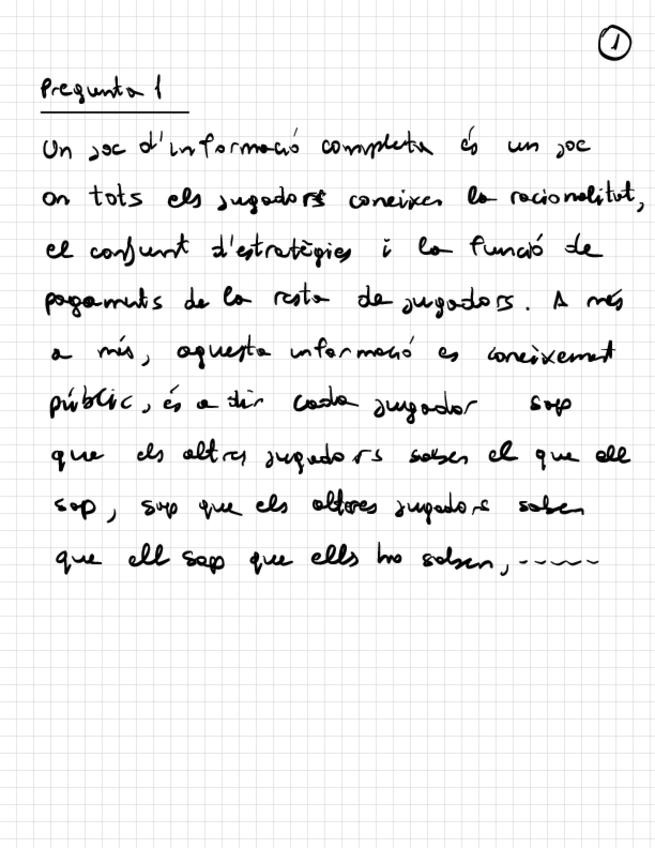 1
Pregunta 1
Un joc d'informació completa és un joc
on tots els jugadors coneixen la racionalitat,
el conjunt d'estratègies i la funció de
pagaments de la resta de jugadors. A més
a més, aquesta informació es coneixement
públic, és a dir cada jugador sap
que els altres jugadors saben el que ell
sap, sap que els altres jugadors saben
que ell sap que ells ho saben, -----